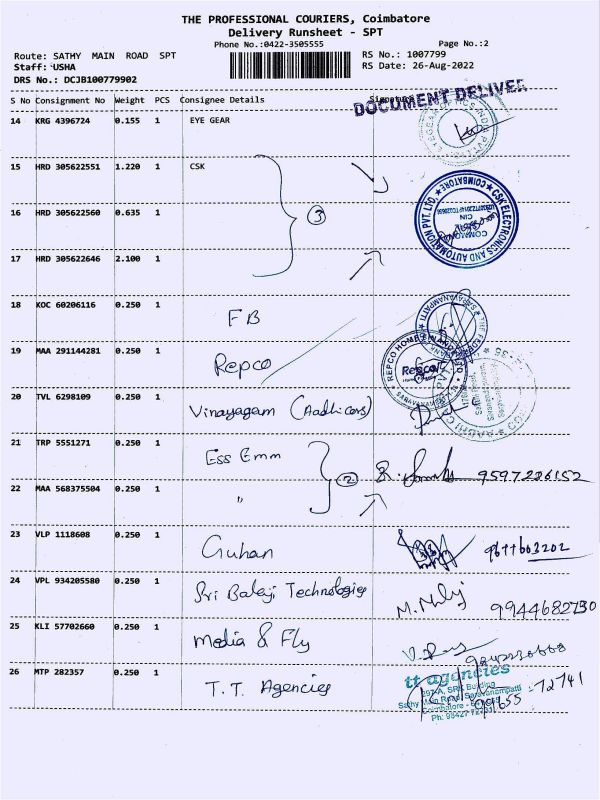 THE PROFESSIONAL COURIERS, Coimbatore
Delivery Runsheet - SPT
Phone No.:0422-3505555 Page No.:2
Route: SATHY MAIN ROAD SPT RS No.: 1007799
Staff: USHA RS Date: 26-Aug-2022
DRS No.: DCJB100779902
DOCUMENT DELIVER
S No Consignment No Weight PCS Consignee Details
14 KRG 4396724 0.155 1 EYE GEAR
15 HRD 305622551 1.220 1 CSK
16 HRD 305622560 0.635 1 3
CSK ELECTRONICS AND AUTOMATION PVT. LTD. COIMBATORE
17 HRD 305622646 2.100 1
18 KOC 60206116 0.250 1 FB
19 MAA 291144281 0.250 1 Repco
REPCO HOME Repco
20 TVL 6298109 0.250 1 Vinayagam (Aadhi cars)
21 TRP 5551271 0.250 1 Ess Emm 2 9597226152
22 MAA 568375504 0.250 1 "
23 VLP 1118608 0.250 1 Guhan 9677603202
24 VPL 934205580 0.250 1 Sri Balaji Technologies 9944682730
25 KLI 57702660 0.250 1 Media & Fly
26 MTP 282357 0.250 1 T.T. Agencies
tt agencies
397-A, SRK Building
Sathy Main Road, Saravanampatti
Coimbatore
72741